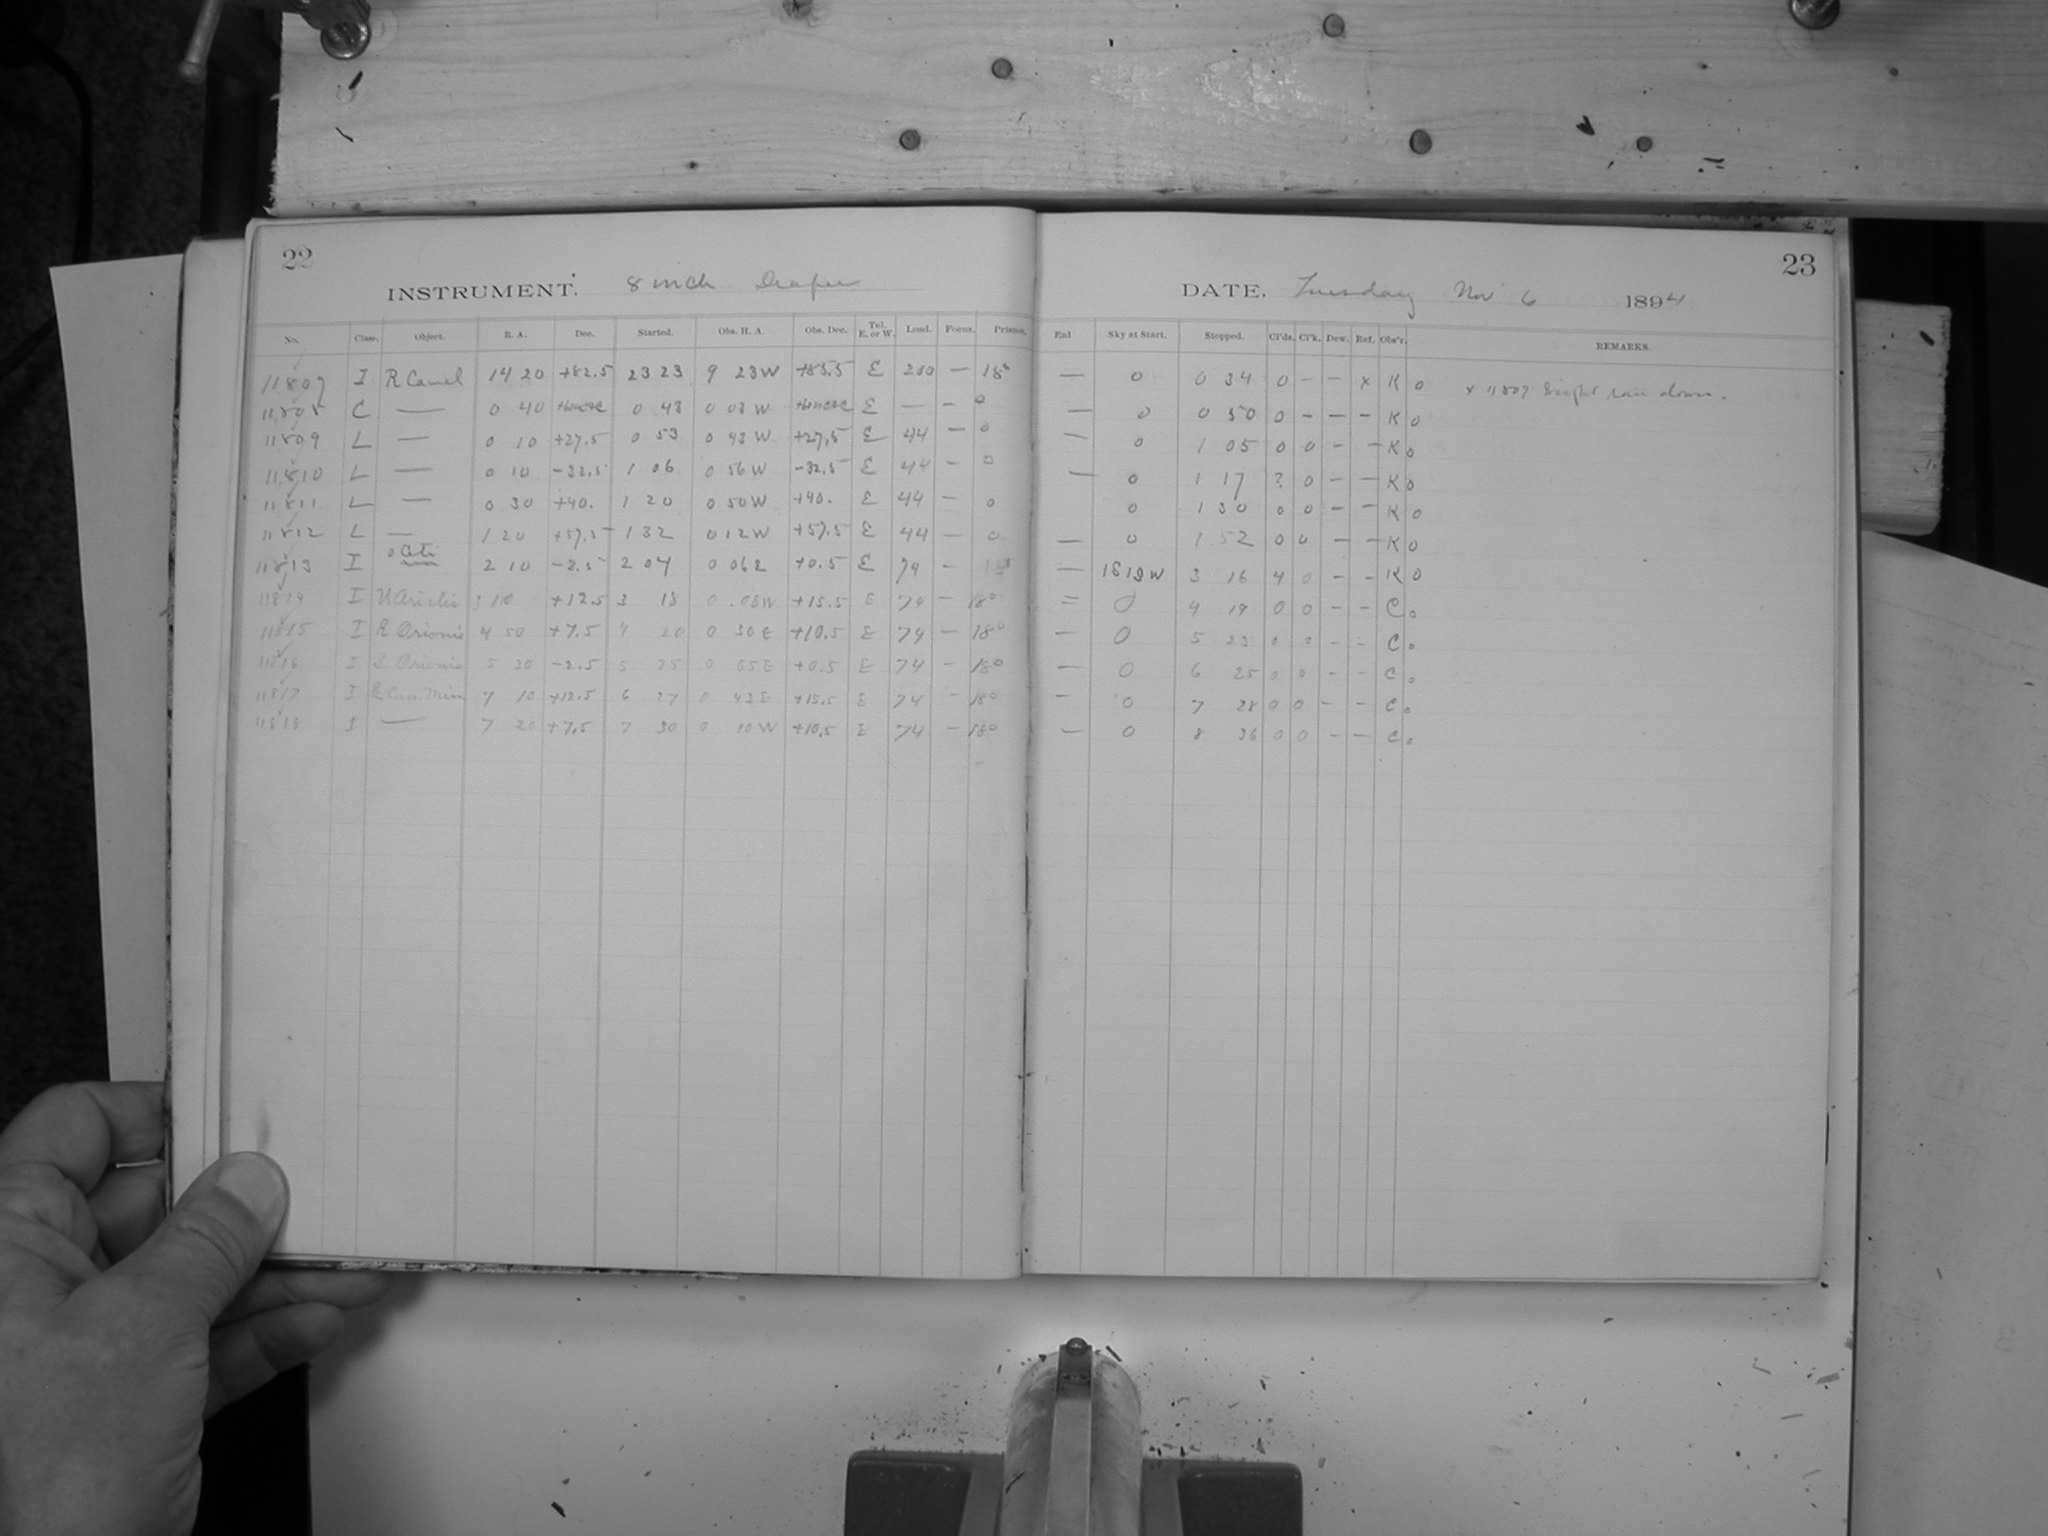 22
INSTRUMENT. 8 inch Draper
No. Class. Object. R. A. Dec. Started. Obs. H. A. Obs. Dec. Tel. E. or W. Load. Focus. Prisms.
11807 I R Camel 14 20 +82.5 23 23 9 23 W +85.5 E 200 — 18°
C — 0 40 0 43 0 03 W E — — 0
11809 L — 0 10 +27.5 0 53 0 43 W +27.5 E 44 — 0
11810 L — 0 10 -32.5 1 06 0 56 W -32.5 E 44 — 0
11811 L — 0 30 +40. 1 20 0 50 W +40. E 44 — 0
11812 L — 1 20 +57.5 1 32 0 12 W +57.5 E 44 — 0
11813 I o Ceti 2 10 -2.5 2 04 +0.5 E 74 —
11814 I U Arietis 3 10 +12.5 3 18 0 .08 W +15.5 E 74 — 18°
11815 I R Orionis 4 50 +7.5 4 20 0 30 E +10.5 E 74 — 18°
11816 I S Orionis 5 30 -2.5 5 25 0 05 E +0.5 E 74 — 18°
11817 I R Can. Min 7 10 +12.5 6 27 0 43 E +15.5 E 74 — 18°
11818 I — 7 20 +7.5 7 30 0 10 W +10.5 E 74 — 18°
23
DATE, Tuesday Nov 6 1894
Enl Sky at Start. Stopped. Cl'ds. Cl'k. Dew. Ref. Obs'r. REMARKS.
— 0 0 34 0 - - x K 0 x 11807 down.
— 0 0 50 0 - - - K 0
— 0 1 05 0 0 - - K 0
— 0 1 17 ? 0 - - K 0
0 1 30 0 0 - - K 0
— 0 1 52 0 0 - - K 0
— 1818 W 3 16 4 0 - - K 0
= 0 4 19 0 0 - - C 0
— 0 5 23 0 0 - - C 0
— 0 6 25 0 0 - - C 0
— 0 7 28 0 0 - - C 0
— 0 8 36 0 0 - - C 0